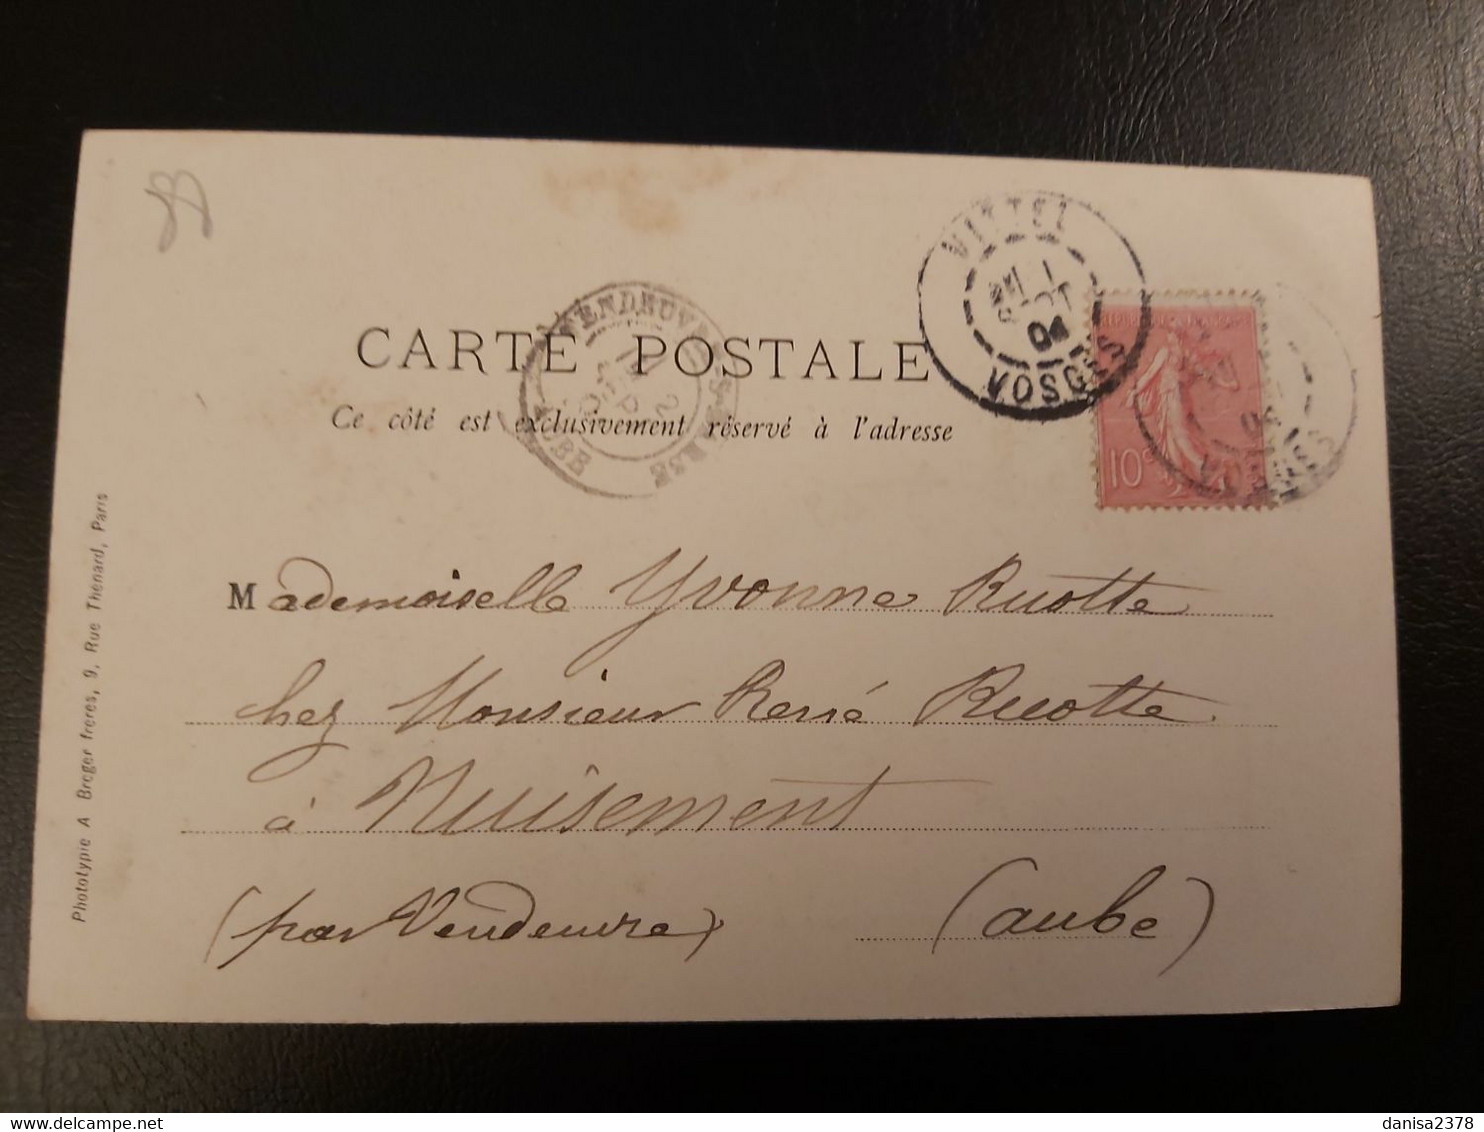 88
VITTEL
1
04
VOSGES
VENDEUVRE-S-BARSE
AUBE
10c
VOSGES
CARTE POSTALE
Ce côté est exclusivement réservé à l'adresse
Mademoiselle Yvonne Ruotte
chez Monsieur René Ruotte
à Nuisement
(par Vendeuvre) (aube)
Phototypie A Breger frères, 9, Rue Thénard, Paris
danisa2378